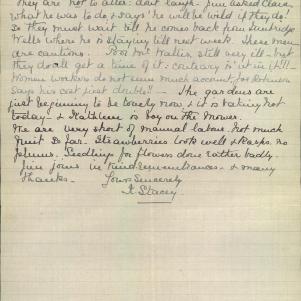 They are not to alter - dont laugh - Jim asked Clara
what he was to do, & says 'he will be wild if they do!'
So they must wait till he comes back from Tunbridge
Wells where he is staying till next week. These men
are cautions. Poor Mr Waller still very ill - but
they do all get a time of it: contrary is'nt in it!!-
Women workers do not seem much account, for
Says his cost just double!! - The gardens are
just beginning to be lovely now & it is taking hot
today - & Kathleen is boy on the Mower.
We are very short of manual labour. Not much
fruit so far - Strawberries look well & Rasps. no
plums. Seedlings for flowers done rather badly.
Jim joins in kind remembrances - & many
thanks - Yours Sincerely
I. Stacey